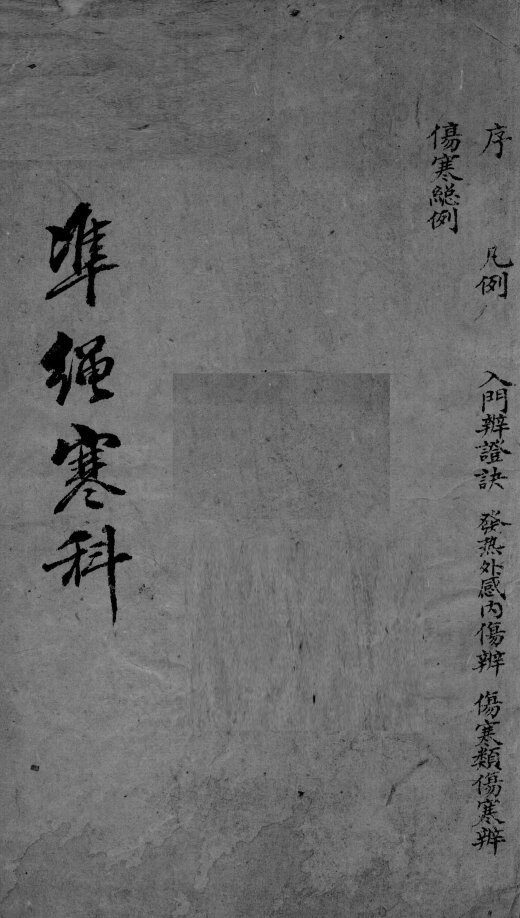 序　凡例　入門辨證訣　發热外感内傷辨　傷寒類傷寒辨
傷寒総例
準繩寒科